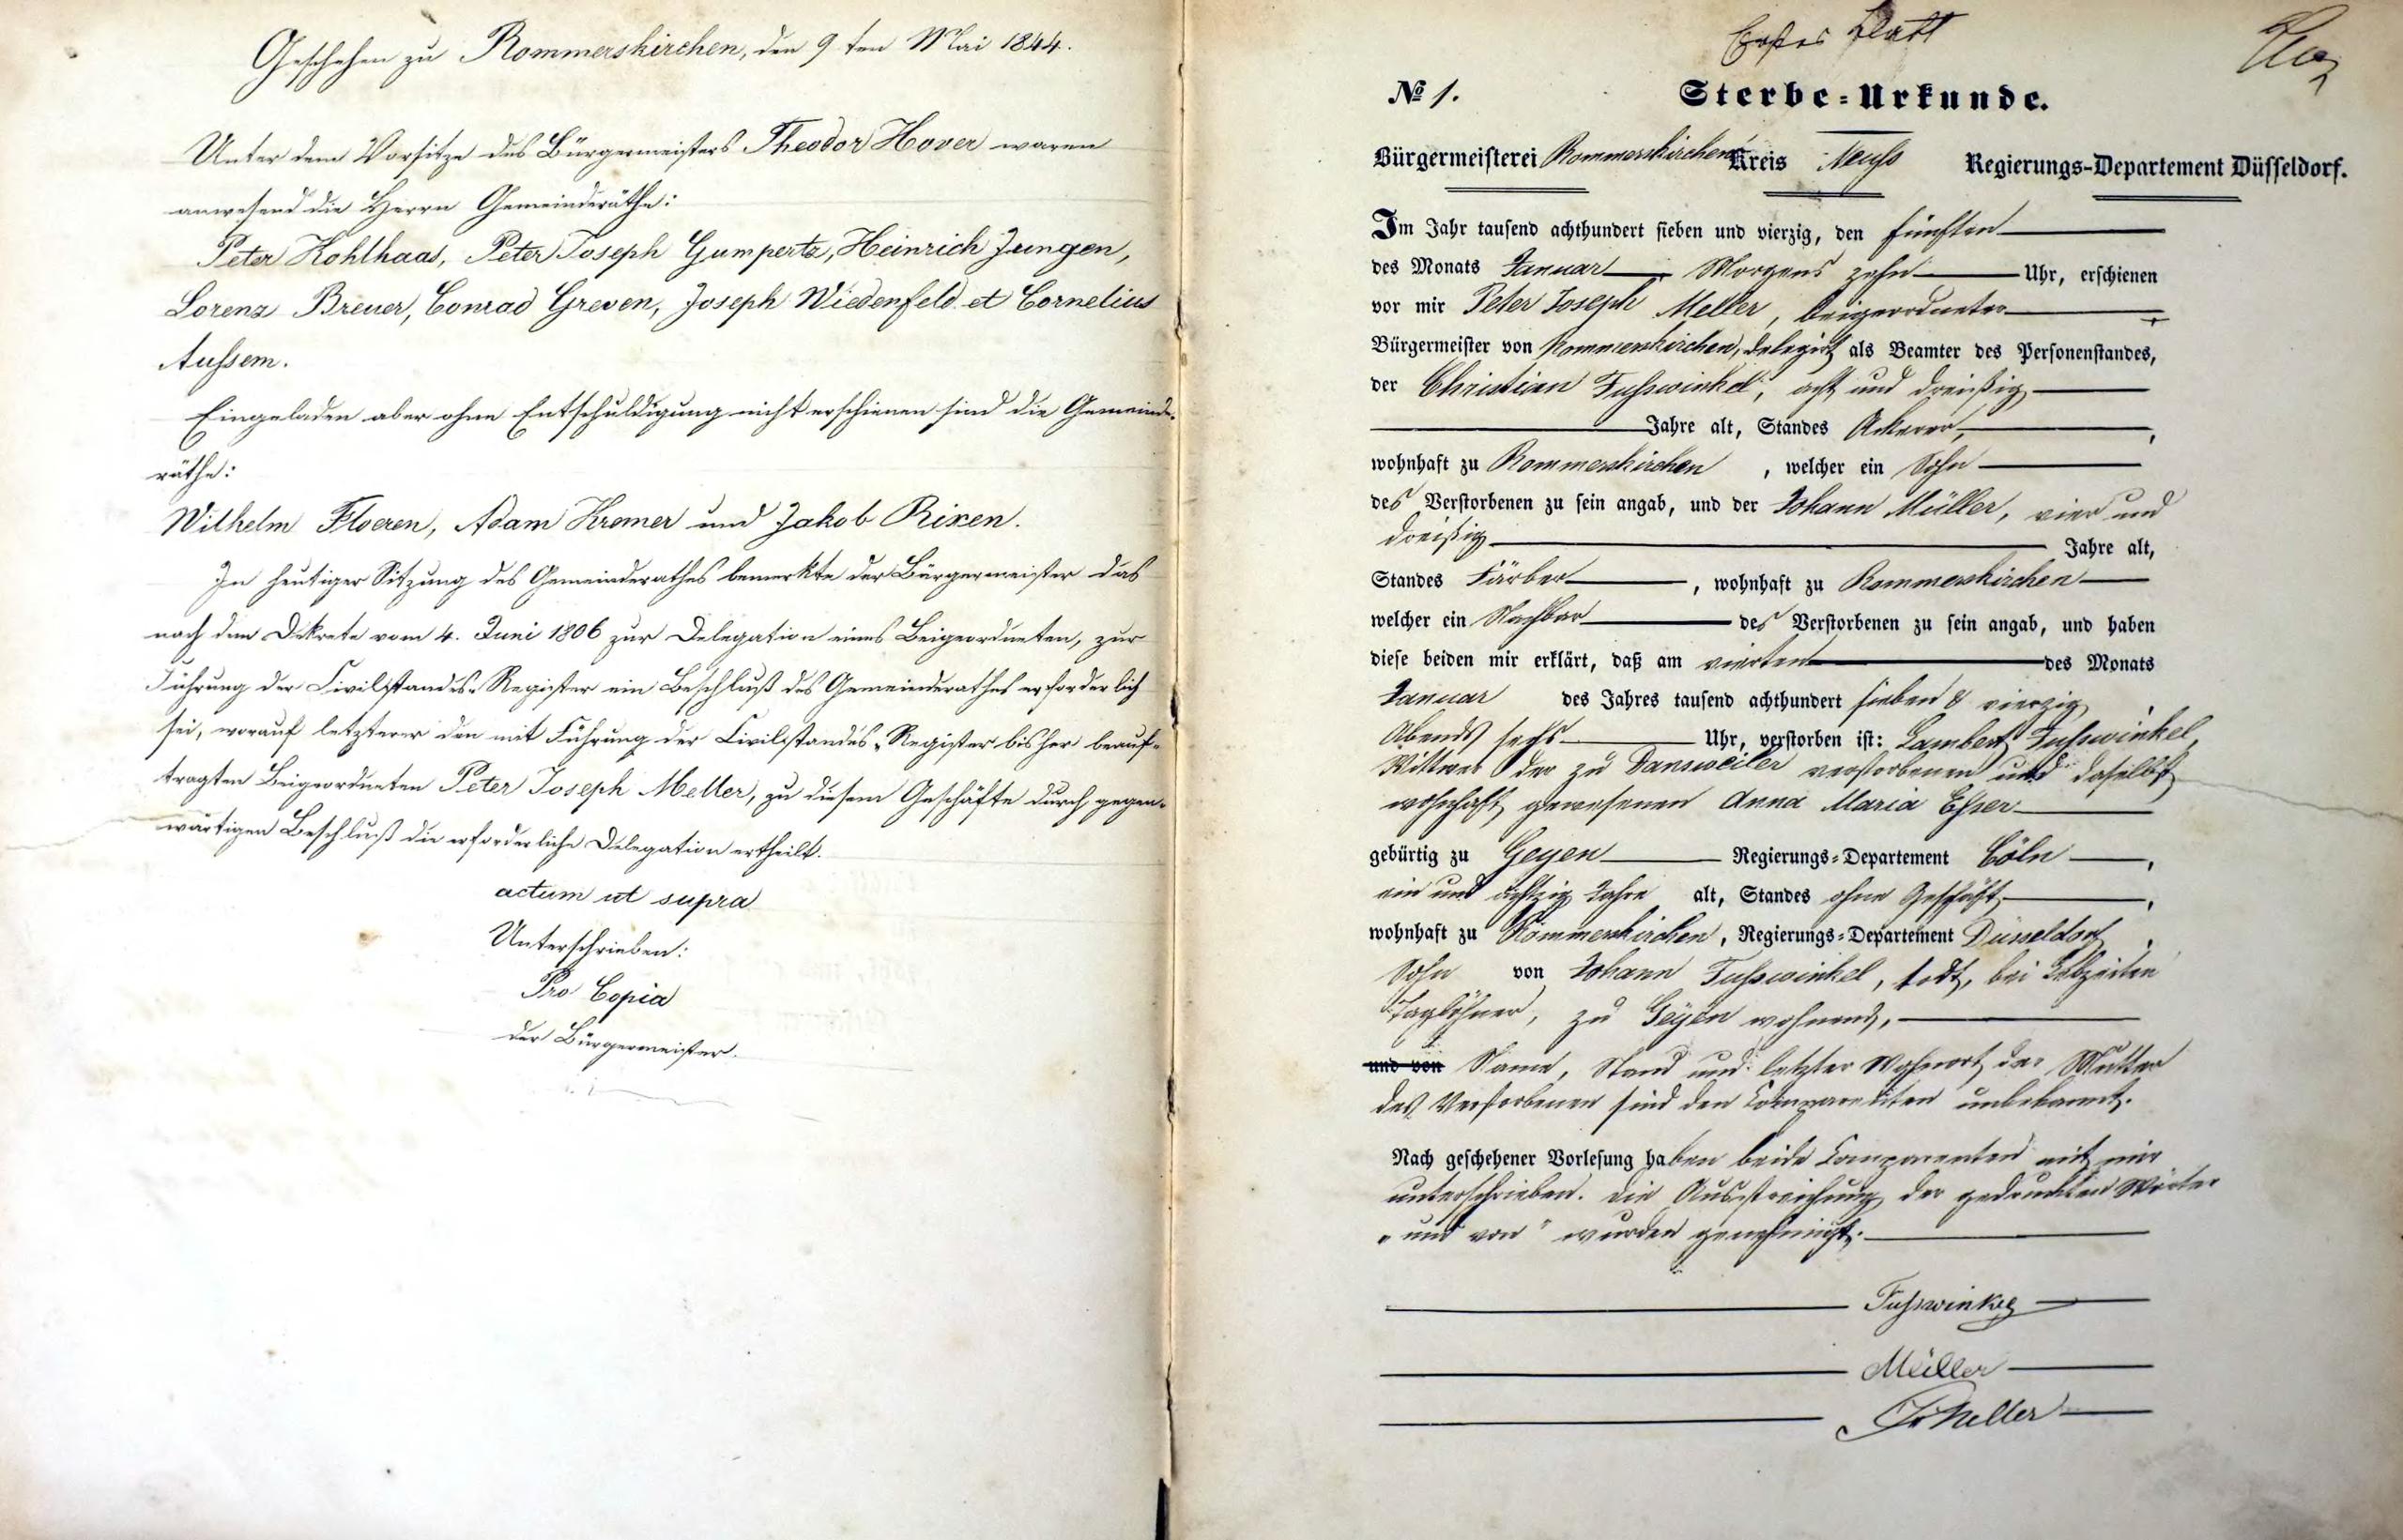 Geschehen zu Rommerskirchen, den 9ten Mai 1844.
Unter dem Vorsitze des Bürgermeisters Theodor Hover waren
anwesend die Herrn Gemeinderäthe:
Peter Kohlhaas, Peter Joseph Gumpertz, Heinrich Jungen,
Lorenz Breuer, Conrad Greven, Joseph Wiedenfeld et Cornelius
Aussem.
Eingeladen aber ohne Entschuldigung nicht erschienen sind die Gemeinde-
räthe:
Wilhelm Floeren, Adam Kremer und Jakob Rixen.
In heutiger Sitzung des Gemeinderathes bemerkte der Bürgermeister das
nach dem Dekrete vom 4. Juni 1806 zur Delegation eines Beigeordneten, zur
Führung der Civilstandes-Register ein Beschluß des Gemeinderathes erforderlich
sei, worauf letzterer den mit Führung der Civilstandes-Register bisher beauf-
tragten Beigeordneten Peter Joseph Meller, zu diesem Geschäfte durch gegen-
wärtigen Beschluß die erforderliche Delegation ertheilt.
actum ut supra
Unterschrieben:
Pro Copia
der Bürgermeister.
Erstes Blatt
№ 1. Sterbe-Urkunde.
Bürgermeisterei Rommerskirchen Kreis Neuß Regierungs-Departement Düsseldorf.
Im Jahr tausend achthundert sieben und vierzig, den fünften
des Monats Januar Morgens zehn Uhr, erschienen
vor mir Peter Joseph Meller, beigeordneter
Bürgermeister von Rommerskirchen, delegirt als Beamter des Personenstandes,
der Christian Fußwinkel, acht und dreißig
Jahre alt, Standes Ackerer,
wohnhaft zu Rommerskirchen, welcher ein Sohn
des Verstorbenen zu sein angab, und der Johann Müller, vier und
dreißig Jahre alt,
Standes Färber, wohnhaft zu Rommerskirchen
welcher ein Nachbar des Verstorbenen zu sein angab, und haben
diese beiden mir erklärt, daß am vierten des Monats
Januar des Jahres tausend achthundert sieben & vierzig,
Abends sechs Uhr, verstorben ist: Lambert Fußwinkel,
Wittwer der zu Dansweiler verstorbenen und daselbst
wohnhaft gewesenen Anna Maria Esser
gebürtig zu Geyen Regierungs-Departement Cöln,
ein und achtzig Jahre alt, Standes ohne Geschäft,
wohnhaft zu Rommerskirchen, Regierungs-Departement Düsseldorf,
Sohn von Johann Fußwinkel, todt, bei Lebzeiten
Taglöhner, zu Geyen wohnend,
und von Name, Stand und letzter Wohnort der Mutter
des Verstorbenen sind den Comparenten unbekannt.
Nach geschehener Vorlesung haben beide Comparenten mit mir
unterschrieben. Die Ausstreichung der gedruckten Wörter
„und von" wurden genehmigt.
Fußwinkel
Müller
Meller